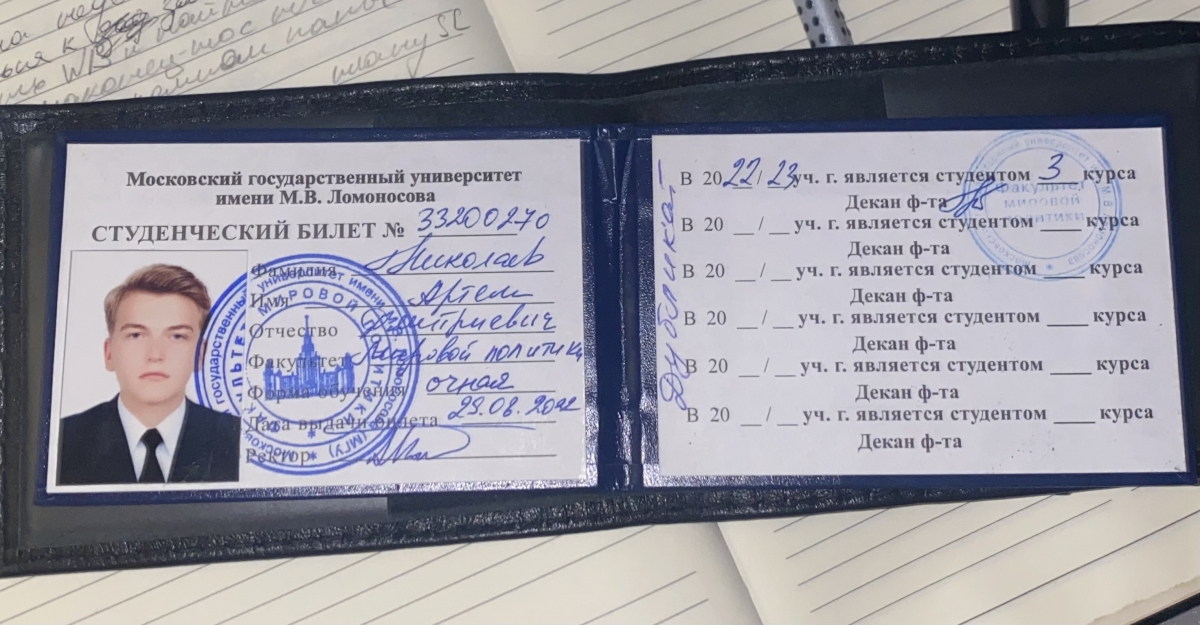 WB
плану SC
Московский государственный университет
имени М.В. Ломоносова
СТУДЕНЧЕСКИЙ БИЛЕТ № 33200270
Фамилия Николаев
Имя Артем
Отчество Дмитриевич
Факультет Мировой политики
Форма обучения очная
Дата выдачи билета 29.08.2022
Ректор
Дубликат
В 2022/23 уч. г. является студентом 3 курса
Декан ф-та
В 20 __/__ уч. г. является студентом ____ курса
Декан ф-та
В 20 __/__ уч. г. является студентом ____ курса
Декан ф-та
В 20 __/__ уч. г. является студентом ____ курса
Декан ф-та
В 20 __/__ уч. г. является студентом ____ курса
Декан ф-та
В 20 __/__ уч. г. является студентом ____ курса
Декан ф-та
факультет
мировой
политики